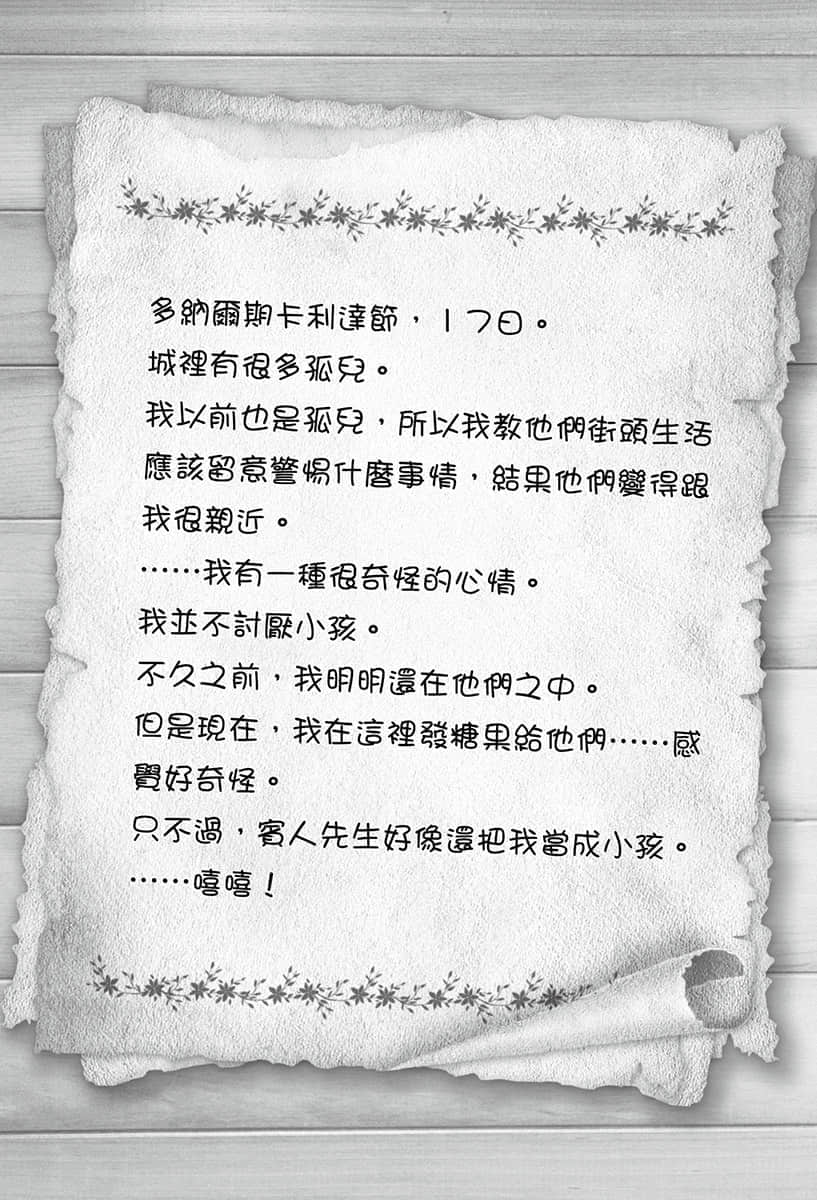 多納爾期卡利達節，17日。
城裡有很多孤兒。
我以前也是孤兒，所以我教他們街頭生活
應該留意警惕什麼事情，結果他們變得跟
我很親近。
……我有一種很奇怪的心情。
我並不討厭小孩。
不久之前，我明明還在他們之中。
但是現在，我在這裡發糖果給他們……感
覺好奇怪。
只不過，賓人先生好像還把我當成小孩。
……嘻嘻！